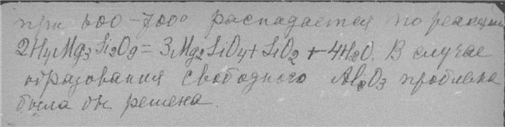 при 600-700° распадается по реакции
2H₄Mg₃Si₂O₉ = 3Mg₂SiO₄ + SiO₂ + 4H₂O. В случае
образования свободного Al₂O₃ проблема
была бы решена.